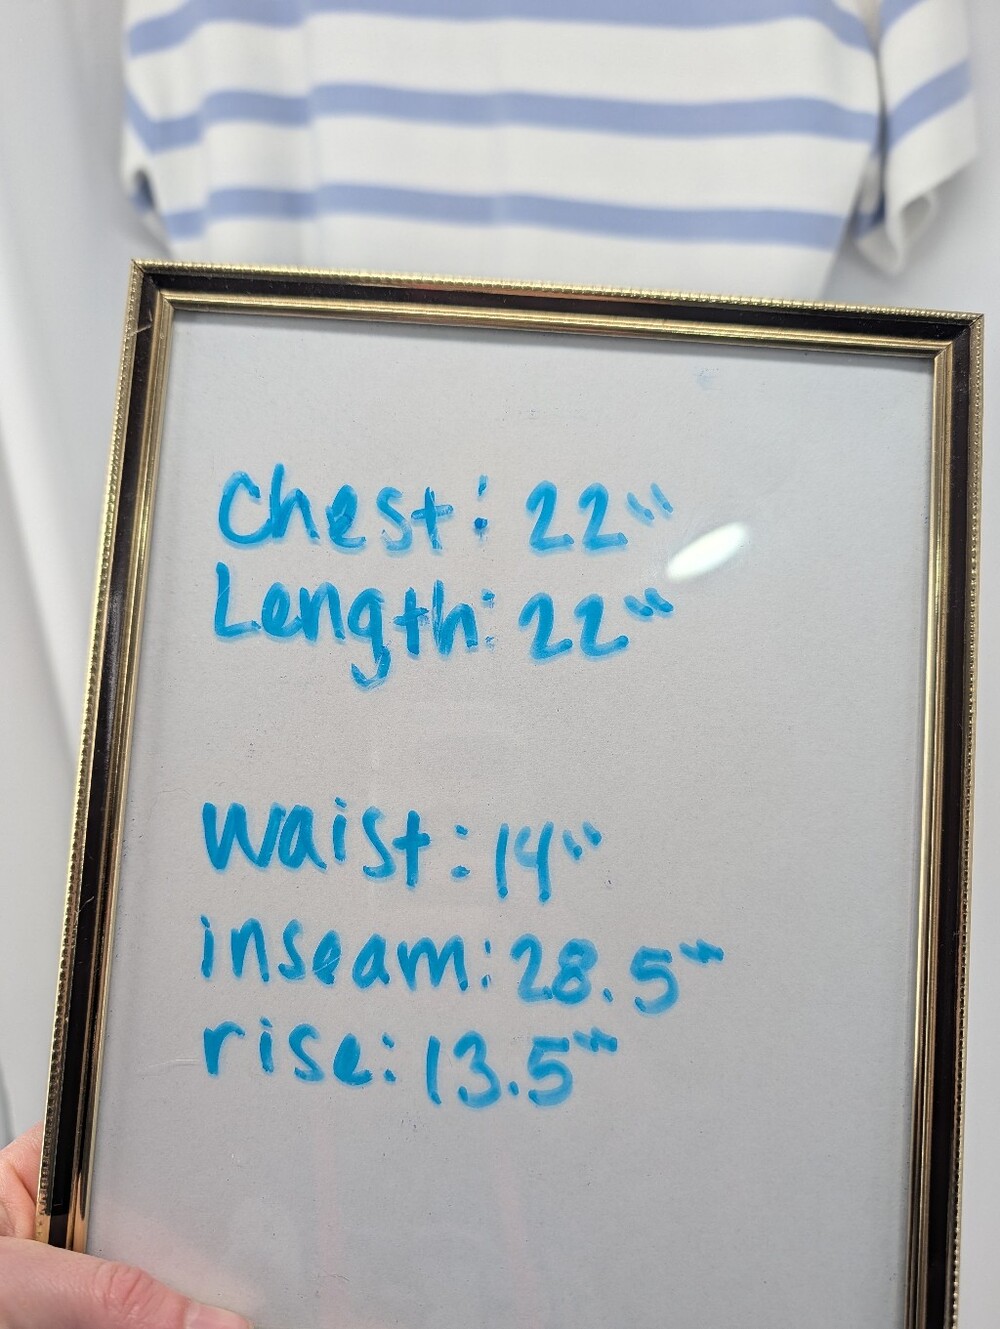 Chest: 22"
Length: 22"
Waist: 14"
inseam: 28.5"
rise: 13.5"